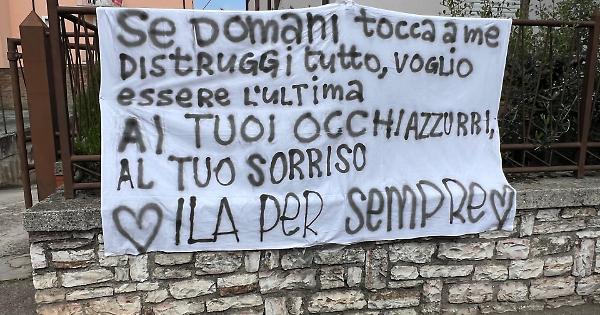 Se DOMANi tocca a me
DiSTRUGGi tutto, VOGLIO
essere L'ULTIMA
AI TUOI OCCHI AZZURRI,
AL TUO SORRISO
♡ ILA PER SEMPRE♡